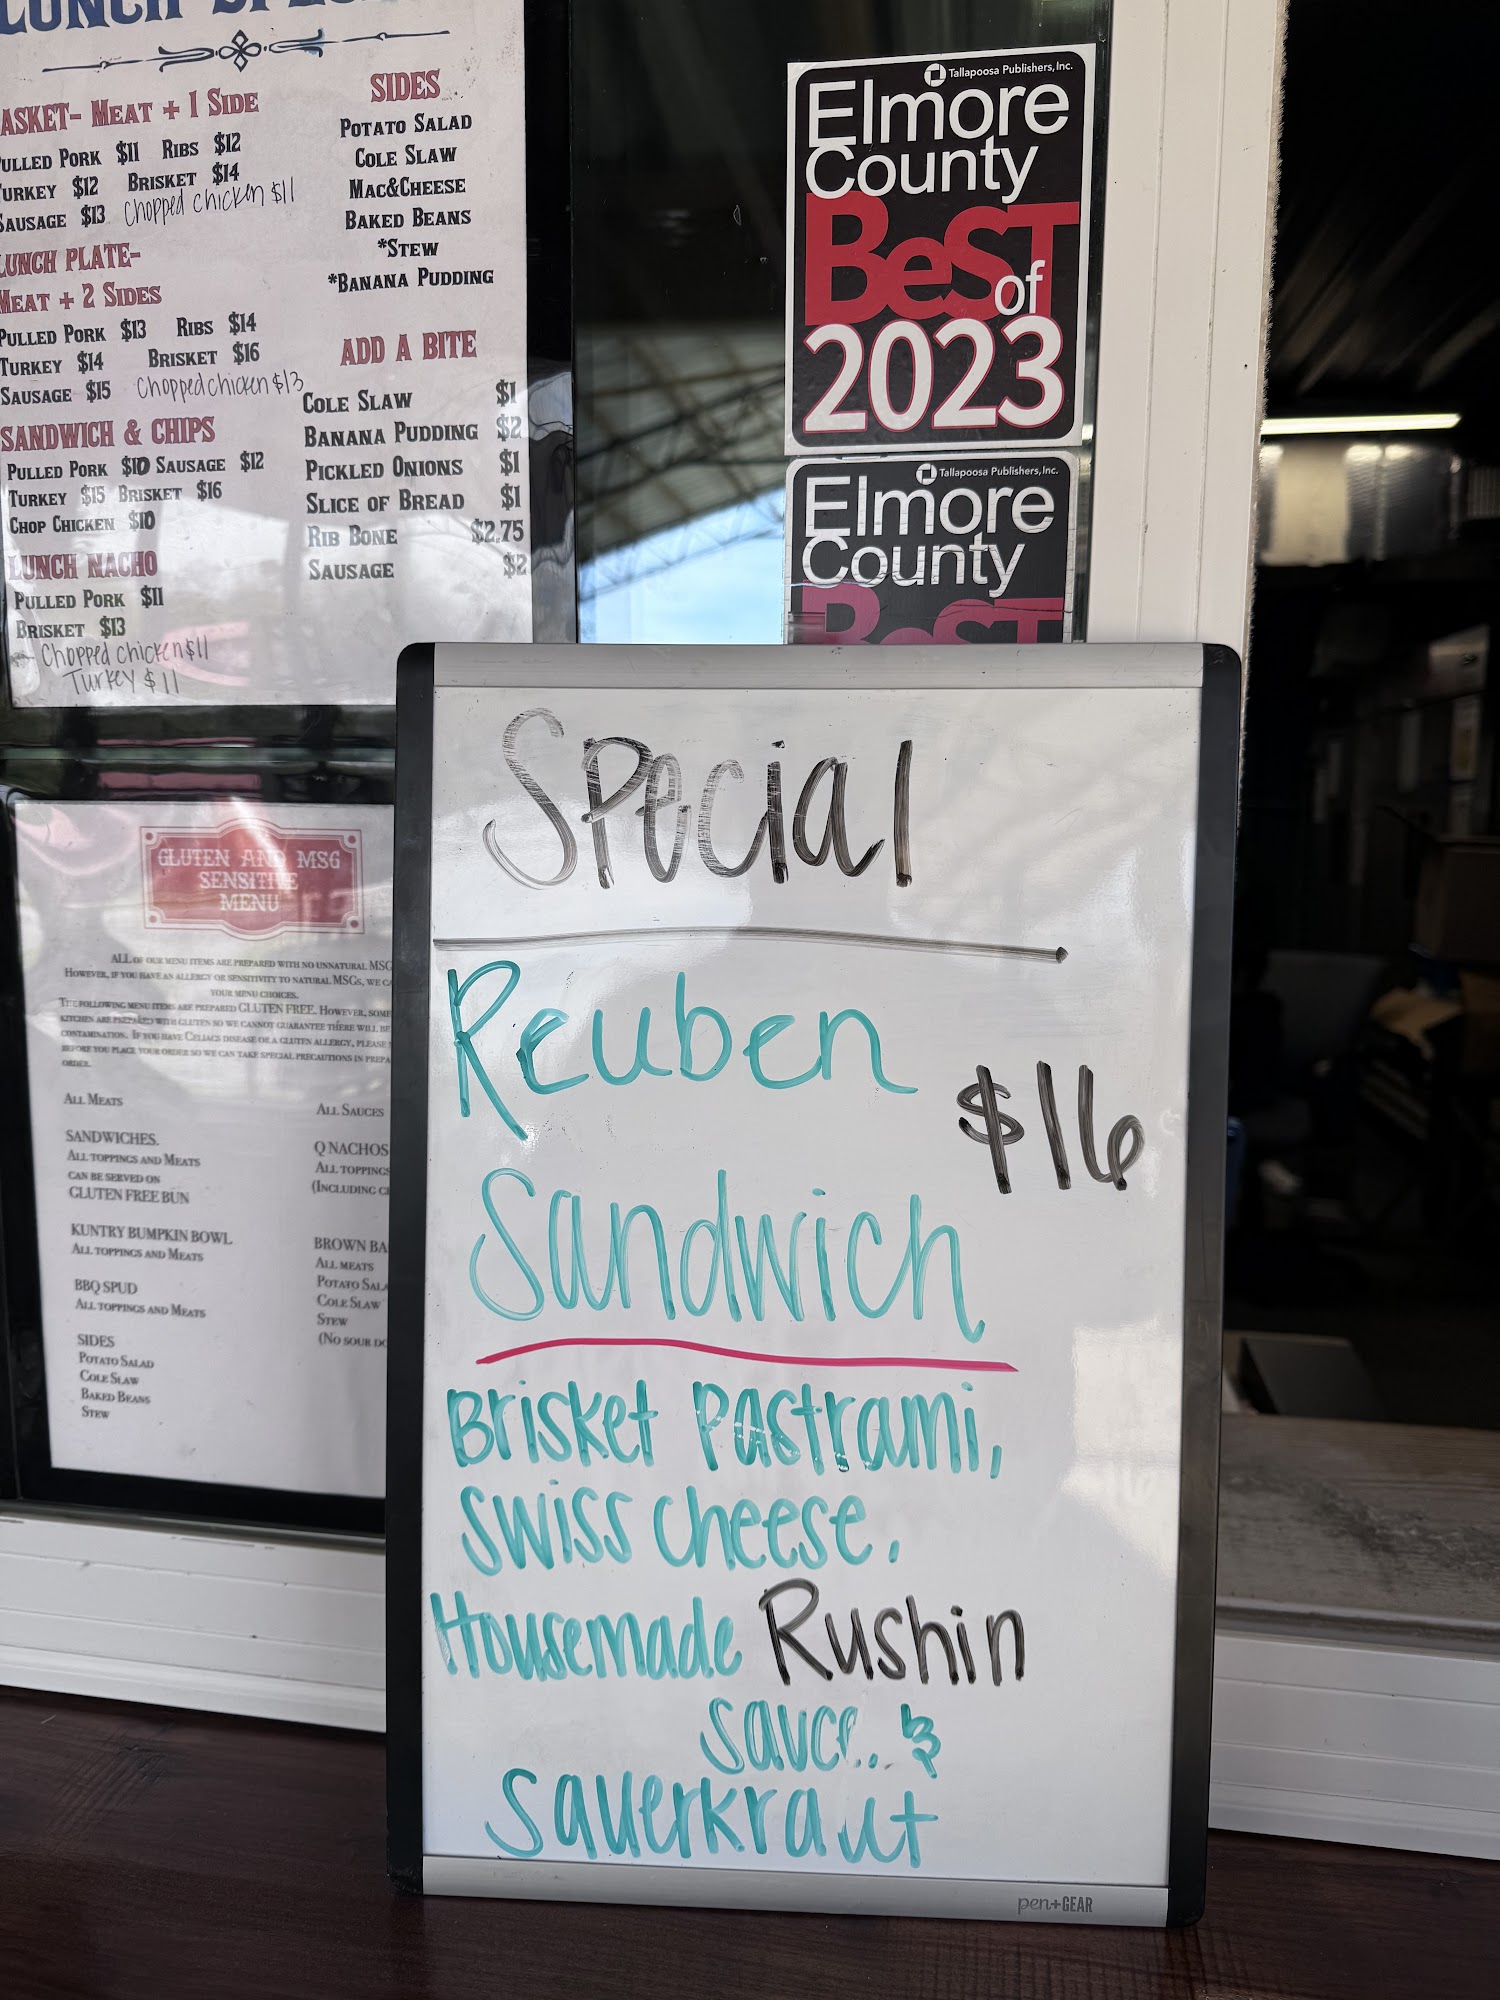 LUNCH
ASKET- MEAT + 1 SIDE
ULLED PORK $11 RIBS $12
URKEY $12 BRISKET $14
SAUSAGE $13 Chopped chicken $11
LUNCH PLATE-
MEAT + 2 SIDES
PULLED PORK $13 RIBS $14
TURKEY $14 BRISKET $16
SAUSAGE $15 Chopped chicken $13
SANDWICH & CHIPS
PULLED PORK $10 SAUSAGE $12
TURKEY $15 BRISKET $16
CHOP CHICKEN $10
LUNCH NACHO
PULLED PORK $11
BRISKET $13
Chopped chicken $11
Turkey $11
SIDES
POTATO SALAD
COLE SLAW
MAC&CHEESE
BAKED BEANS
*STEW
*BANANA PUDDING
ADD A BITE
COLE SLAW $1
BANANA PUDDING $2
PICKLED ONIONS $1
SLICE OF BREAD $1
RIB BONE $2.75
SAUSAGE $2
Tallapoosa Publishers, Inc.
Elmore
County
BeST
of
2023
Tallapoosa Publishers, Inc.
Elmore
County
BeST
GLUTEN AND MSG
SENSITIVE
MENU
ALL OF OUR MENU ITEMS ARE PREPARED WITH NO UNNATURAL MSG
HOWEVER, IF YOU HAVE AN ALLERGY OR SENSITIVITY TO NATURAL MSGS, WE
YOUR MENU CHOICES.
THE FOLLOWING MENU ITEMS ARE PREPARED GLUTEN FREE. HOWEVER, SOME
KITCHEN ARE PREPARED WITH GLUTEN SO WE CANNOT GUARANTEE THERE WILL BE
CONTAMINATION. IF YOU HAVE CELIACS DISEASE OR A GLUTEN ALLERGY, PLEASE
BEFORE YOU PLACE YOUR ORDER SO WE CAN TAKE SPECIAL PRECAUTIONS IN PREPA
ORDER.
ALL MEATS
SANDWICHES.
ALL TOPPINGS AND MEATS
CAN BE SERVED ON
GLUTEN FREE BUN
KUNTRY BUMPKIN BOWL
ALL TOPPINGS AND MEATS
BBQ SPUD
ALL TOPPINGS AND MEATS
SIDES
POTATO SALAD
COLE SLAW
BAKED BEANS
STEW
ALL SAUCES
Q NACHOS
ALL TOPPINGS
(INCLUDING
BROWN BA
ALL MEATS
POTATO SALA
COLE SLAW
STEW
(NO SOUR DO
Special
Reuben
$16
Sandwich
Brisket Pastrami,
Swiss cheese,
Housemade Rushin
sauce.. &
Sauerkraut
pen+GEAR